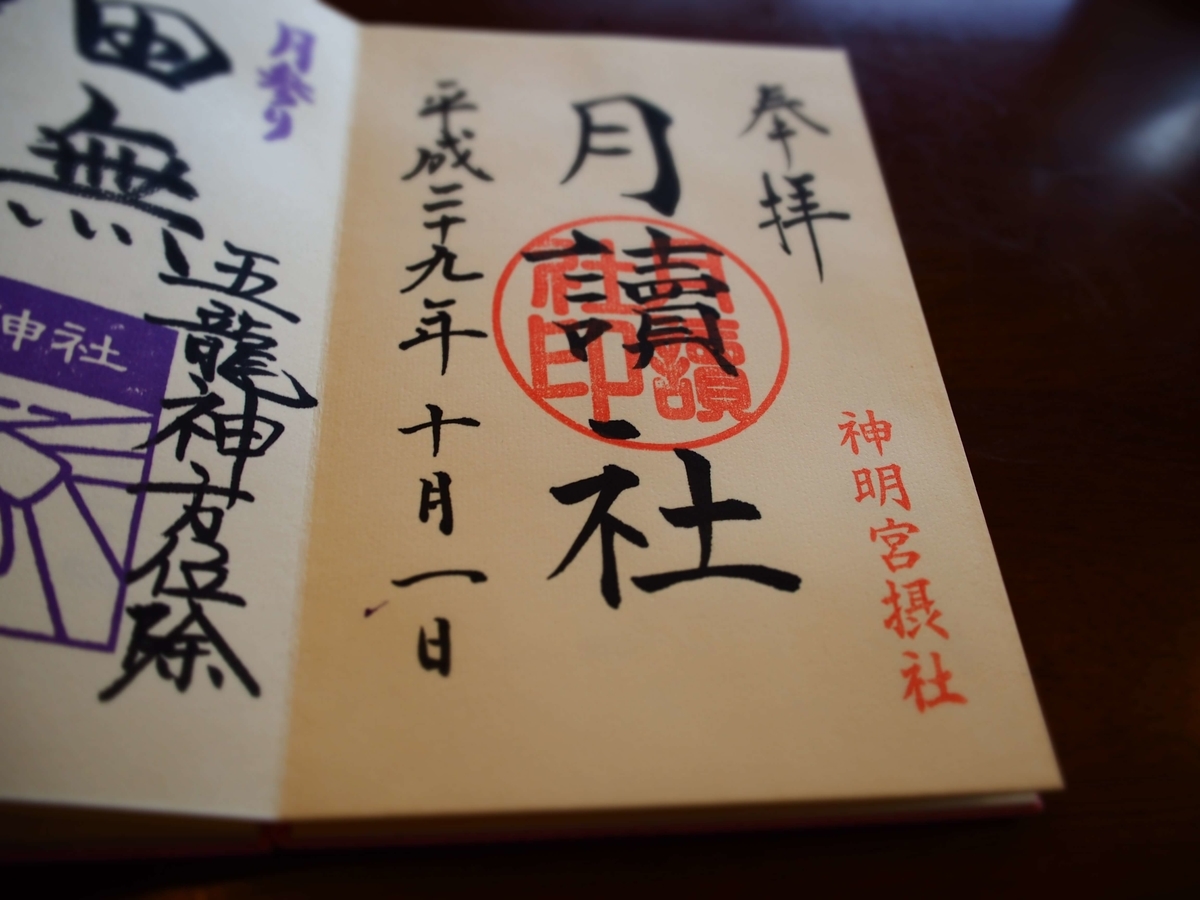 奉拝
月讀社
月讀社印
平成二十九年十月一日
神明宮摂社
月参り
田無
五龍神方位除
神社